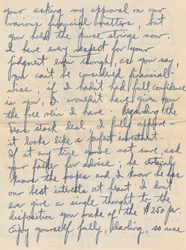 your asking my approval on our
various financial matters, but
you hold the purse strings now.
I have every respect for your
judgment even though, as you say,
you can't be considered financial-
wise; if I hadn't had full confidence
in you, I wouldn't have given you
the free rein I have. Regarding the
stock deal. I fully approve
it looks like a perfect investment.
If at any time you're not sure, ask
your father for advice; he certainly
knows the ropes and I know he has
our best interests at heart. I don't
ever give a single thought to the
disposition you make of the $250 per.
Enjoy yourself fully, darling, so use